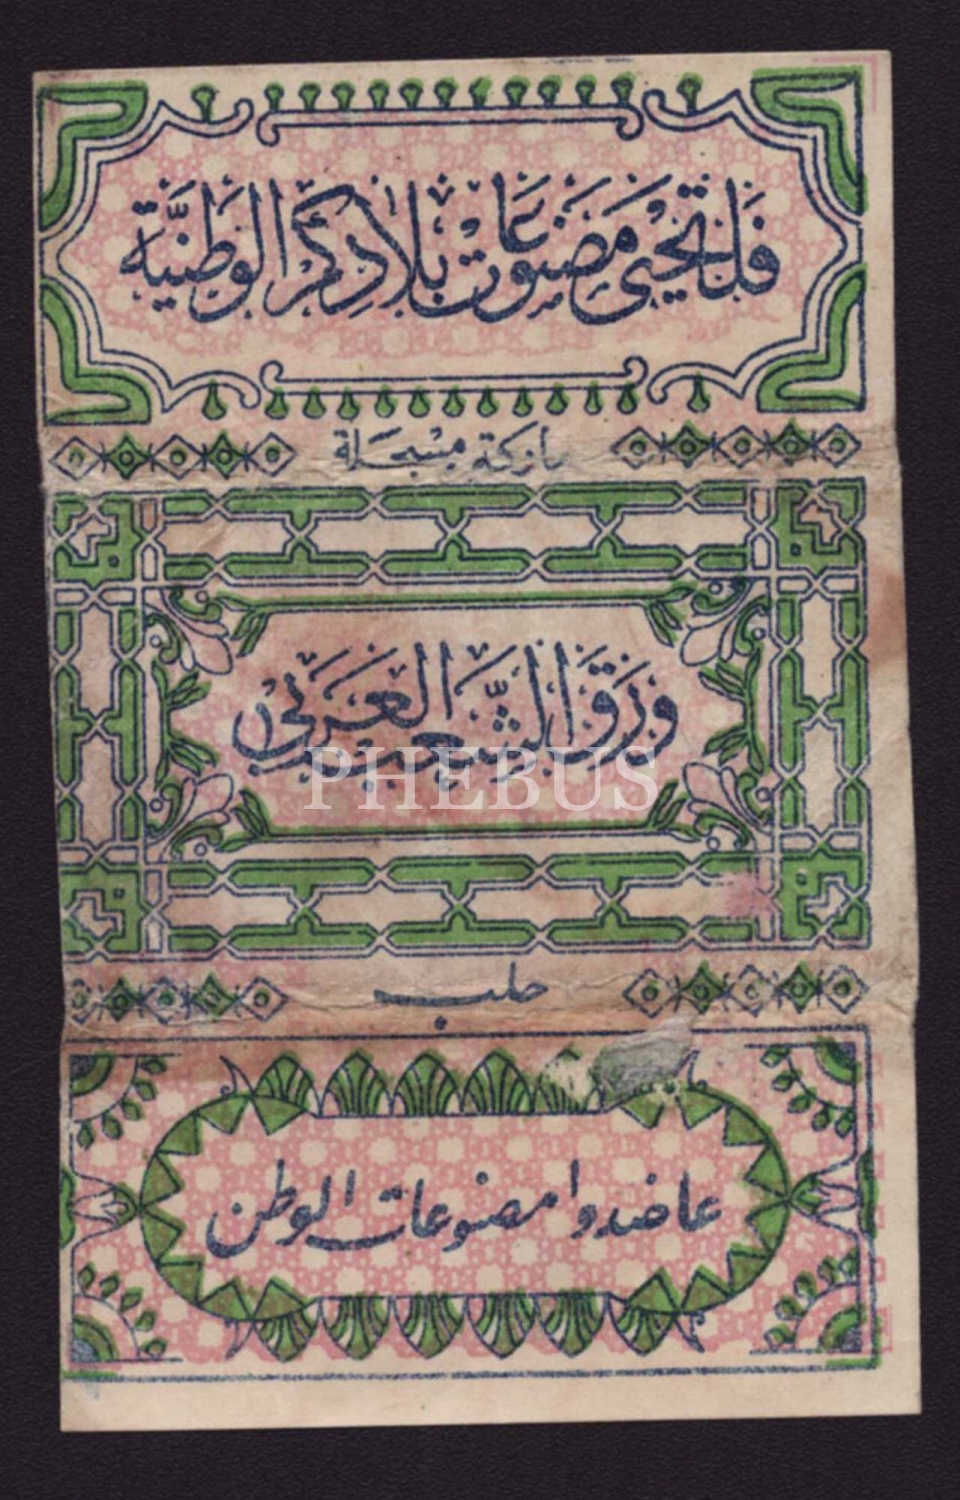 فَلتَحْيَى مَصْنُوعَات بلادِكُمُ الوَطَنِيَّة
ماركة مسجلة
وَرَق الشَّعب العَرَبي
PHEBUS
حلب
عاضدوا مصنوعات الوطن